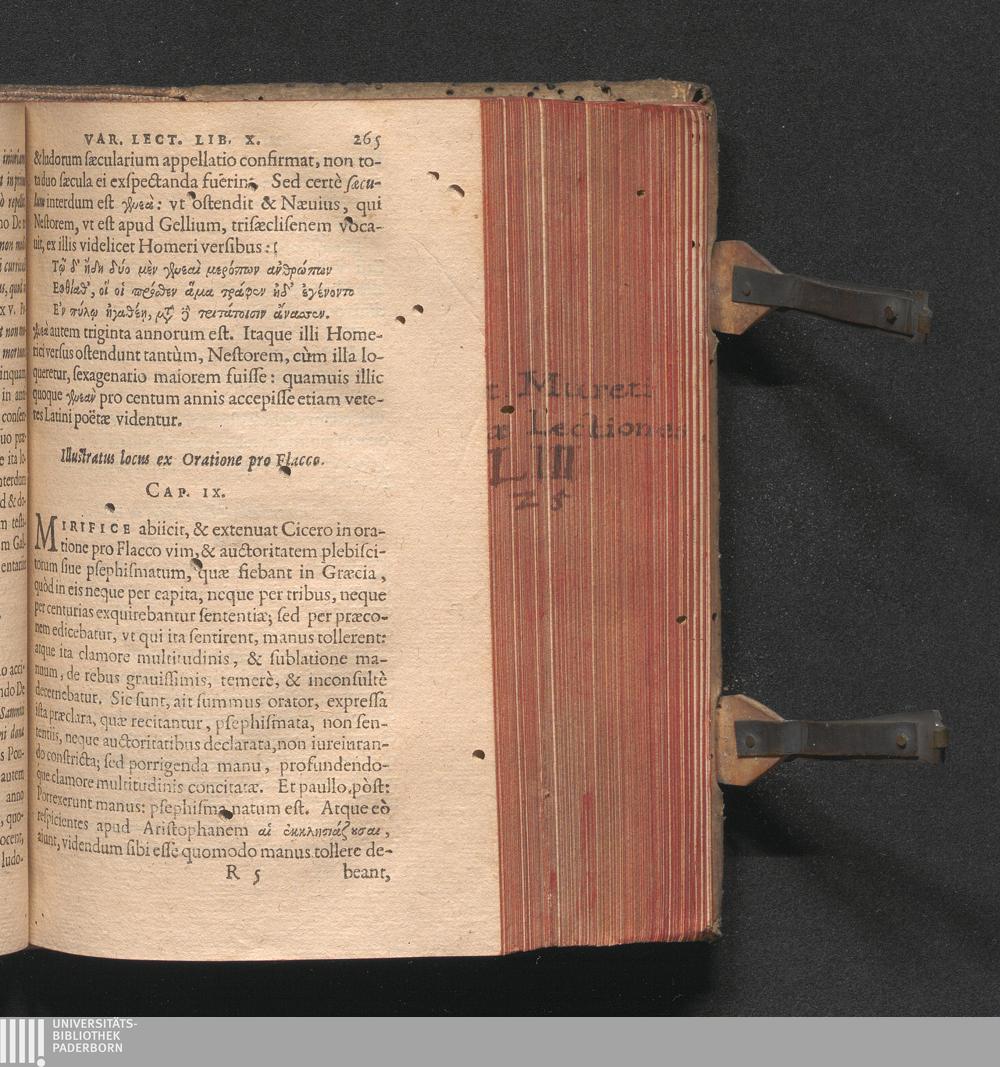 VAR. LECT. LIB. X. 265
& ludorum sæcularium appellatio confirmat, non to-
ta duo sæcula ei exspectanda fuerint. Sed certè sæcu-
lum interdum est γενεὰ: vt ostendit & Næuius, qui
Nestorem, vt est apud Gellium, trisæclisenem voca-
uit, ex illis videlicet Homeri versibus:
Τῷ δ' ἤδη δύο μὲν γενεαὶ μερόπων ἀνθρώπων
Ἐφθίαθ', οἵ οἱ πρόσθεν ἅμα τράφεν ἠδ' ἐγένοντο
Ἐν πύλῳ ἠγαθέῃ, μετὰ δὲ τριτάτοισιν ἄνασσεν.
γενεὰ autem triginta annorum est. Itaque illi Home-
rici versus ostendunt tantùm, Nestorem, cùm illa lo-
queretur, sexagenario maiorem fuisse: quamuis illic
quoque γενεὰν pro centum annis accepisse etiam vete-
res Latini poëtæ videntur.
Illustratus locus ex Oratione pro Flacco.
CAP. IX.
MIRIFICE abiicit, & extenuat Cicero in ora-
tione pro Flacco vim, & auctoritatem plebisci-
torum siue psephismatum, quæ fiebant in Græcia,
quòd in eis neque per capita, neque per tribus, neque
per centurias exquirebantur sententiæ; sed per præco-
nem edicebatur, vt qui ita sentirent, manus tollerent:
atque ita clamore multitudinis, & sublatione ma-
nuum, de rebus grauissimis, temerè, & inconsultè
decernebatur. Sic sunt, ait summus orator, expressa
ista præclara, quæ recitantur, psephismata, non sen-
tentiis, neque auctoritatibus declarata, non iureiuran-
do constricta; sed porrigenda manu, profundendo-
que clamore multitudinis concitatæ. Et paullo pòst:
Porrexerunt manus: psephisma natum est. Atque eò
respicientes apud Aristophanem αἱ ἐκκλησιάζουσαι,
aiunt, videndum sibi esse quomodo manus tollere de-
R 5 beant,
Mureti
Lectiones
LIII
25
UNIVERSITÄTS-
BIBLIOTHEK
PADERBORN